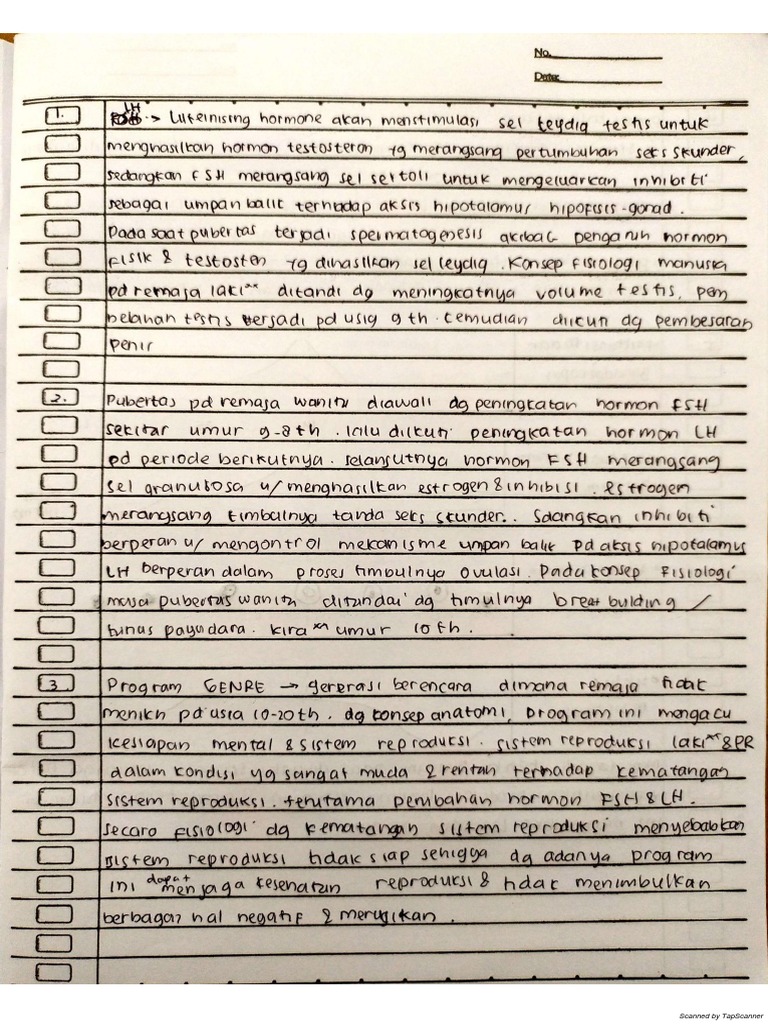 No.
Date:
1. LH -> Luteinising hormone akan menstimulasi sel leydig testis untuk
menghasilkan hormon testosteron yg merangsang pertumbuhan seks skunder,
sedangkan FSH merangsang sel sertoli untuk mengeluarkan inhibiti
sebagai umpan balik terhadap aksis hipotalamus hipofisis-gonad.
Pada saat pubertas terjadi spermatogenesis akibat pengaruh hormon
fisik & testosten yg dihasilkan sel leydig. Konsep Fisiologi manusia
pd remaja laki" ditandi dg meningkatnya volume testis, pem
belahan testis terjadi pd usia 9 th. Cemudian diikuti dg pembesaran
penir
2. Pubertas pd remaja wanita diawali dg peningkatan hormon FSH
sekitar umur 9-8th. lalu diikuti peningkatan hormon LH
pd periode berikutnya. selanjutnya hormon FSH merangsang
sel granulosa u/ menghasilkan estrogen & inhibisi. estrogen
merangsang timbulnya tanda seks skunder.. Sdangkan inhibiti
berperan u/ mengontrol mekanisme umpan balik Pd aksis hipotalamus
LH berperan dalam proses timbulnya ovulasi. Pada konsep Fisiologi
masa pubertas wanita ditandai dg timulnya breat building /
tunas payudara. kira" umur 10 th.
3. Program GENRE -> generasi berencara dimana remaja tidak
menikh pd usia 10-20th. dg konsep anatomi, program ini mengacu
kesiapan mental & sistem reproduksi. sistem reproduksi laki" & PR
dalam kondisi yg sangat muda & rentan terhadap kematangan
sistem reproduksi. terutama perubahan hormon FSH & LH.
Secara fisiologi dg kematangan sistem reproduksi menyebabkan
sistem reproduksi tidak siap sehigga dg adanya program
ini dapat menjaga kesehatan reproduksi & tidak menimbulkan
berbagai hal negatif & merugikan.
Scanned by TapScanner